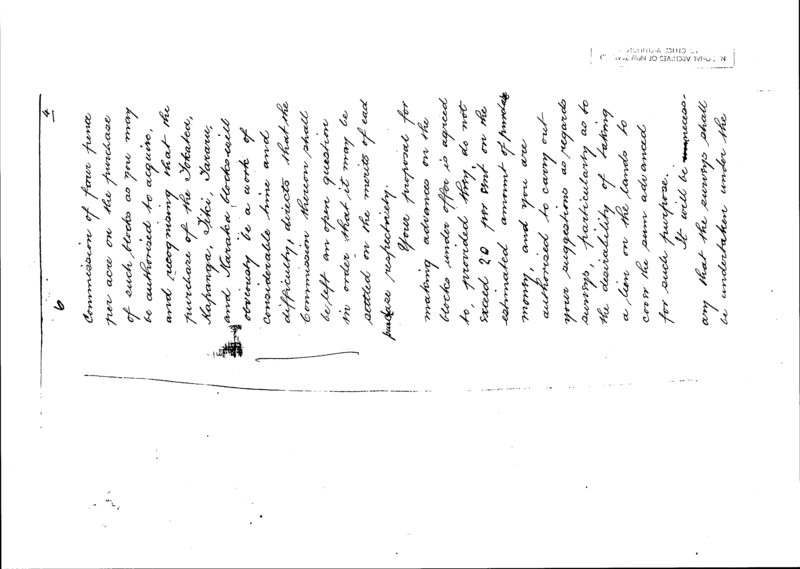 6
4
Commission of four pence
per acre on the purchase
of such blocks as you may
be authorised to acquire,
and recognising that the
purchase of the Tokatea,
Kapanga, Tiki, Tararu,
and Karaka blocks will
obviously be a work of
considerable time and
difficulty, directs that the
Commission thereon shall
be left an open question
in order that it may be
settled on the merits of each
purchase respectively.
Your proposal for
making advances on the
blocks under offer is agreed
to, provided they do not
exceed 20 per cent on the
estimated amount of purchase
money, and you are
authorised to carry out
your suggestions as regards
surveys, particularly as to
the desirability of taking
a lien on the lands to
cover the sum advanced
for such purpose.
It will be unnecess-
ary that the surveys shall
be undertaken under the
NATIONAL ARCHIVES OF NEW ZEALAND